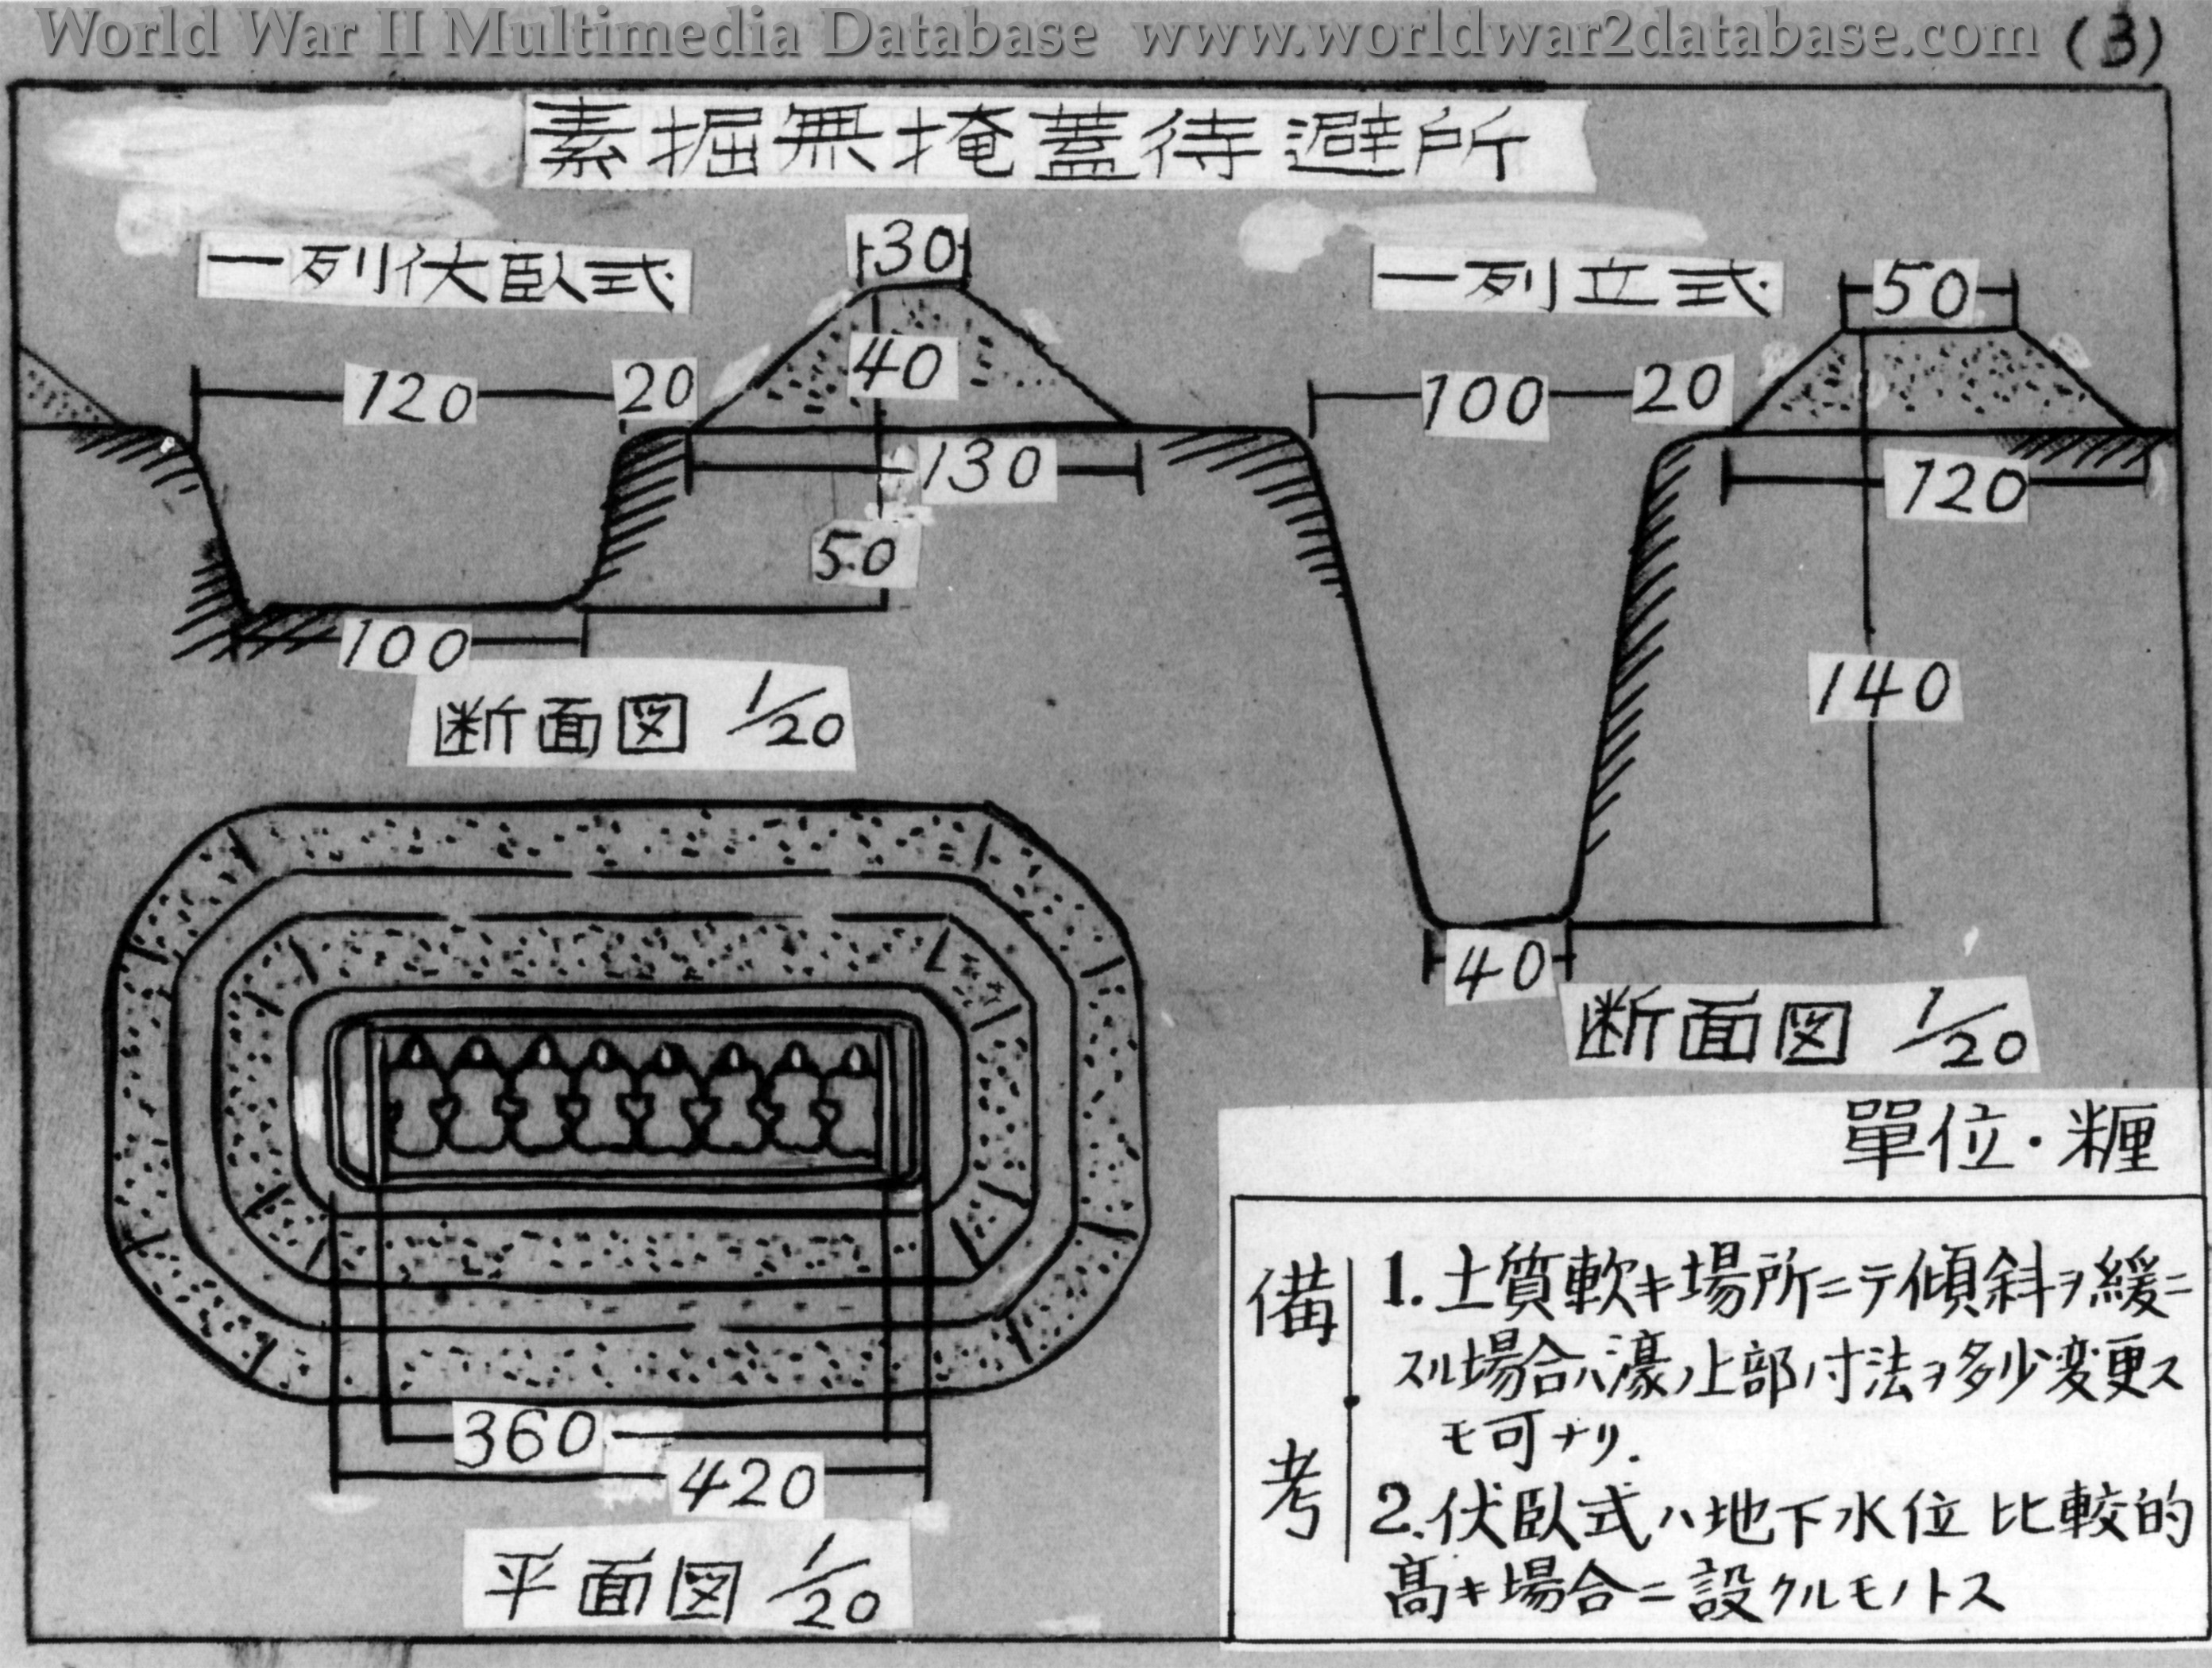 World War II Multimedia Database www.worldwar2database.com (3)
素掘無掩蓋待避所
一列伏臥式
30
40
120
20
130
50
100
断面図 1/20
一列立式
50
100
20
120
140
40
断面図 1/20
360
420
平面図 1/20
單位・糎
備考
1. 土質軟キ場所ニテ傾斜ヲ緩ニ
スル場合ハ濠ノ上部ノ寸法ヲ多少変更ス
モ可ナリ.
2. 伏臥式ハ地下水位比較的
高キ場合ニ設クルモノトス